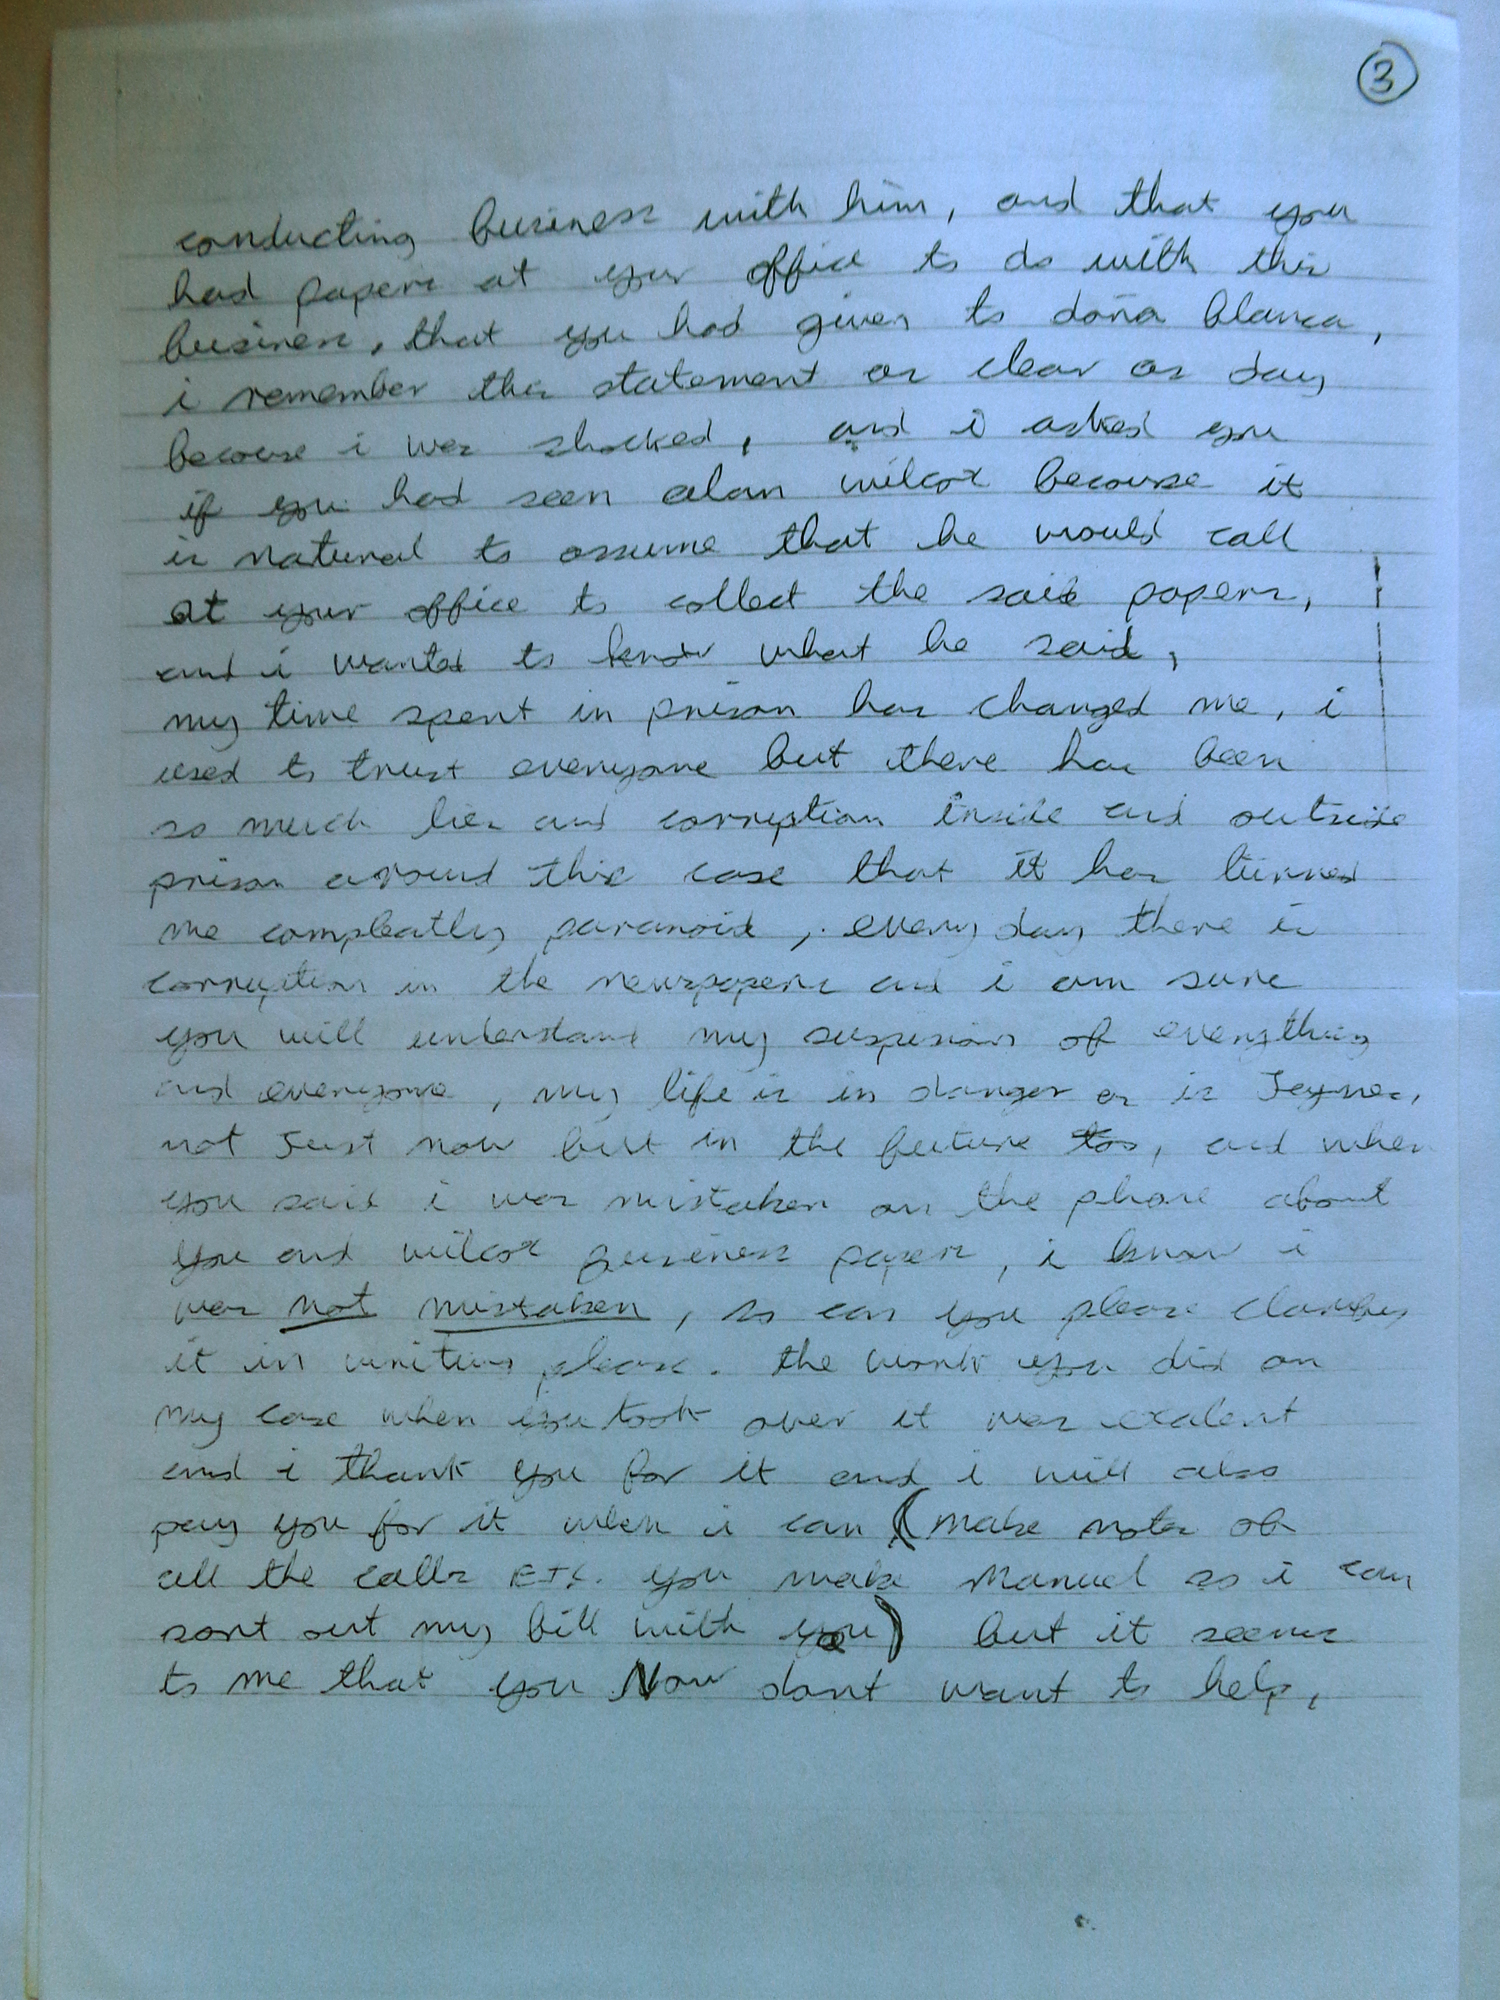 3
conducting business with him, and that you
had papers at your office to do with this
business, that you had given to doña blanca,
i remember this statement as clear as day
because i was shocked, and i asked you
if you had seen alan wilcox because it
is natural to assume that he would call
at your office to collect the said papers,
and i wanted to know what he said,
my time spent in prison has changed me, i
used to trust everyone but there has been
so much lies and corruption inside and outside
prison around this case that it has turned
me compleatly paranoid, every day there is
corruption in the newspapers and i am sure
you will understand my suspesion of everything
and everyone, my life is in danger as is Jaynes,
not Just now but in the future too, and when
you said i was mistaken on the phone about
you and wilcox business papers, i know i
was not mistaken, so can you please clarify
it in writing please. the work you did on
my case when you took over it was exalent
and i thank you for it and i will also
pay you for it when i can (make notes of
all the calls ETC. you make Manuel so i can
sort out my bill with you) but it seems
to me that you Now dont want to help,